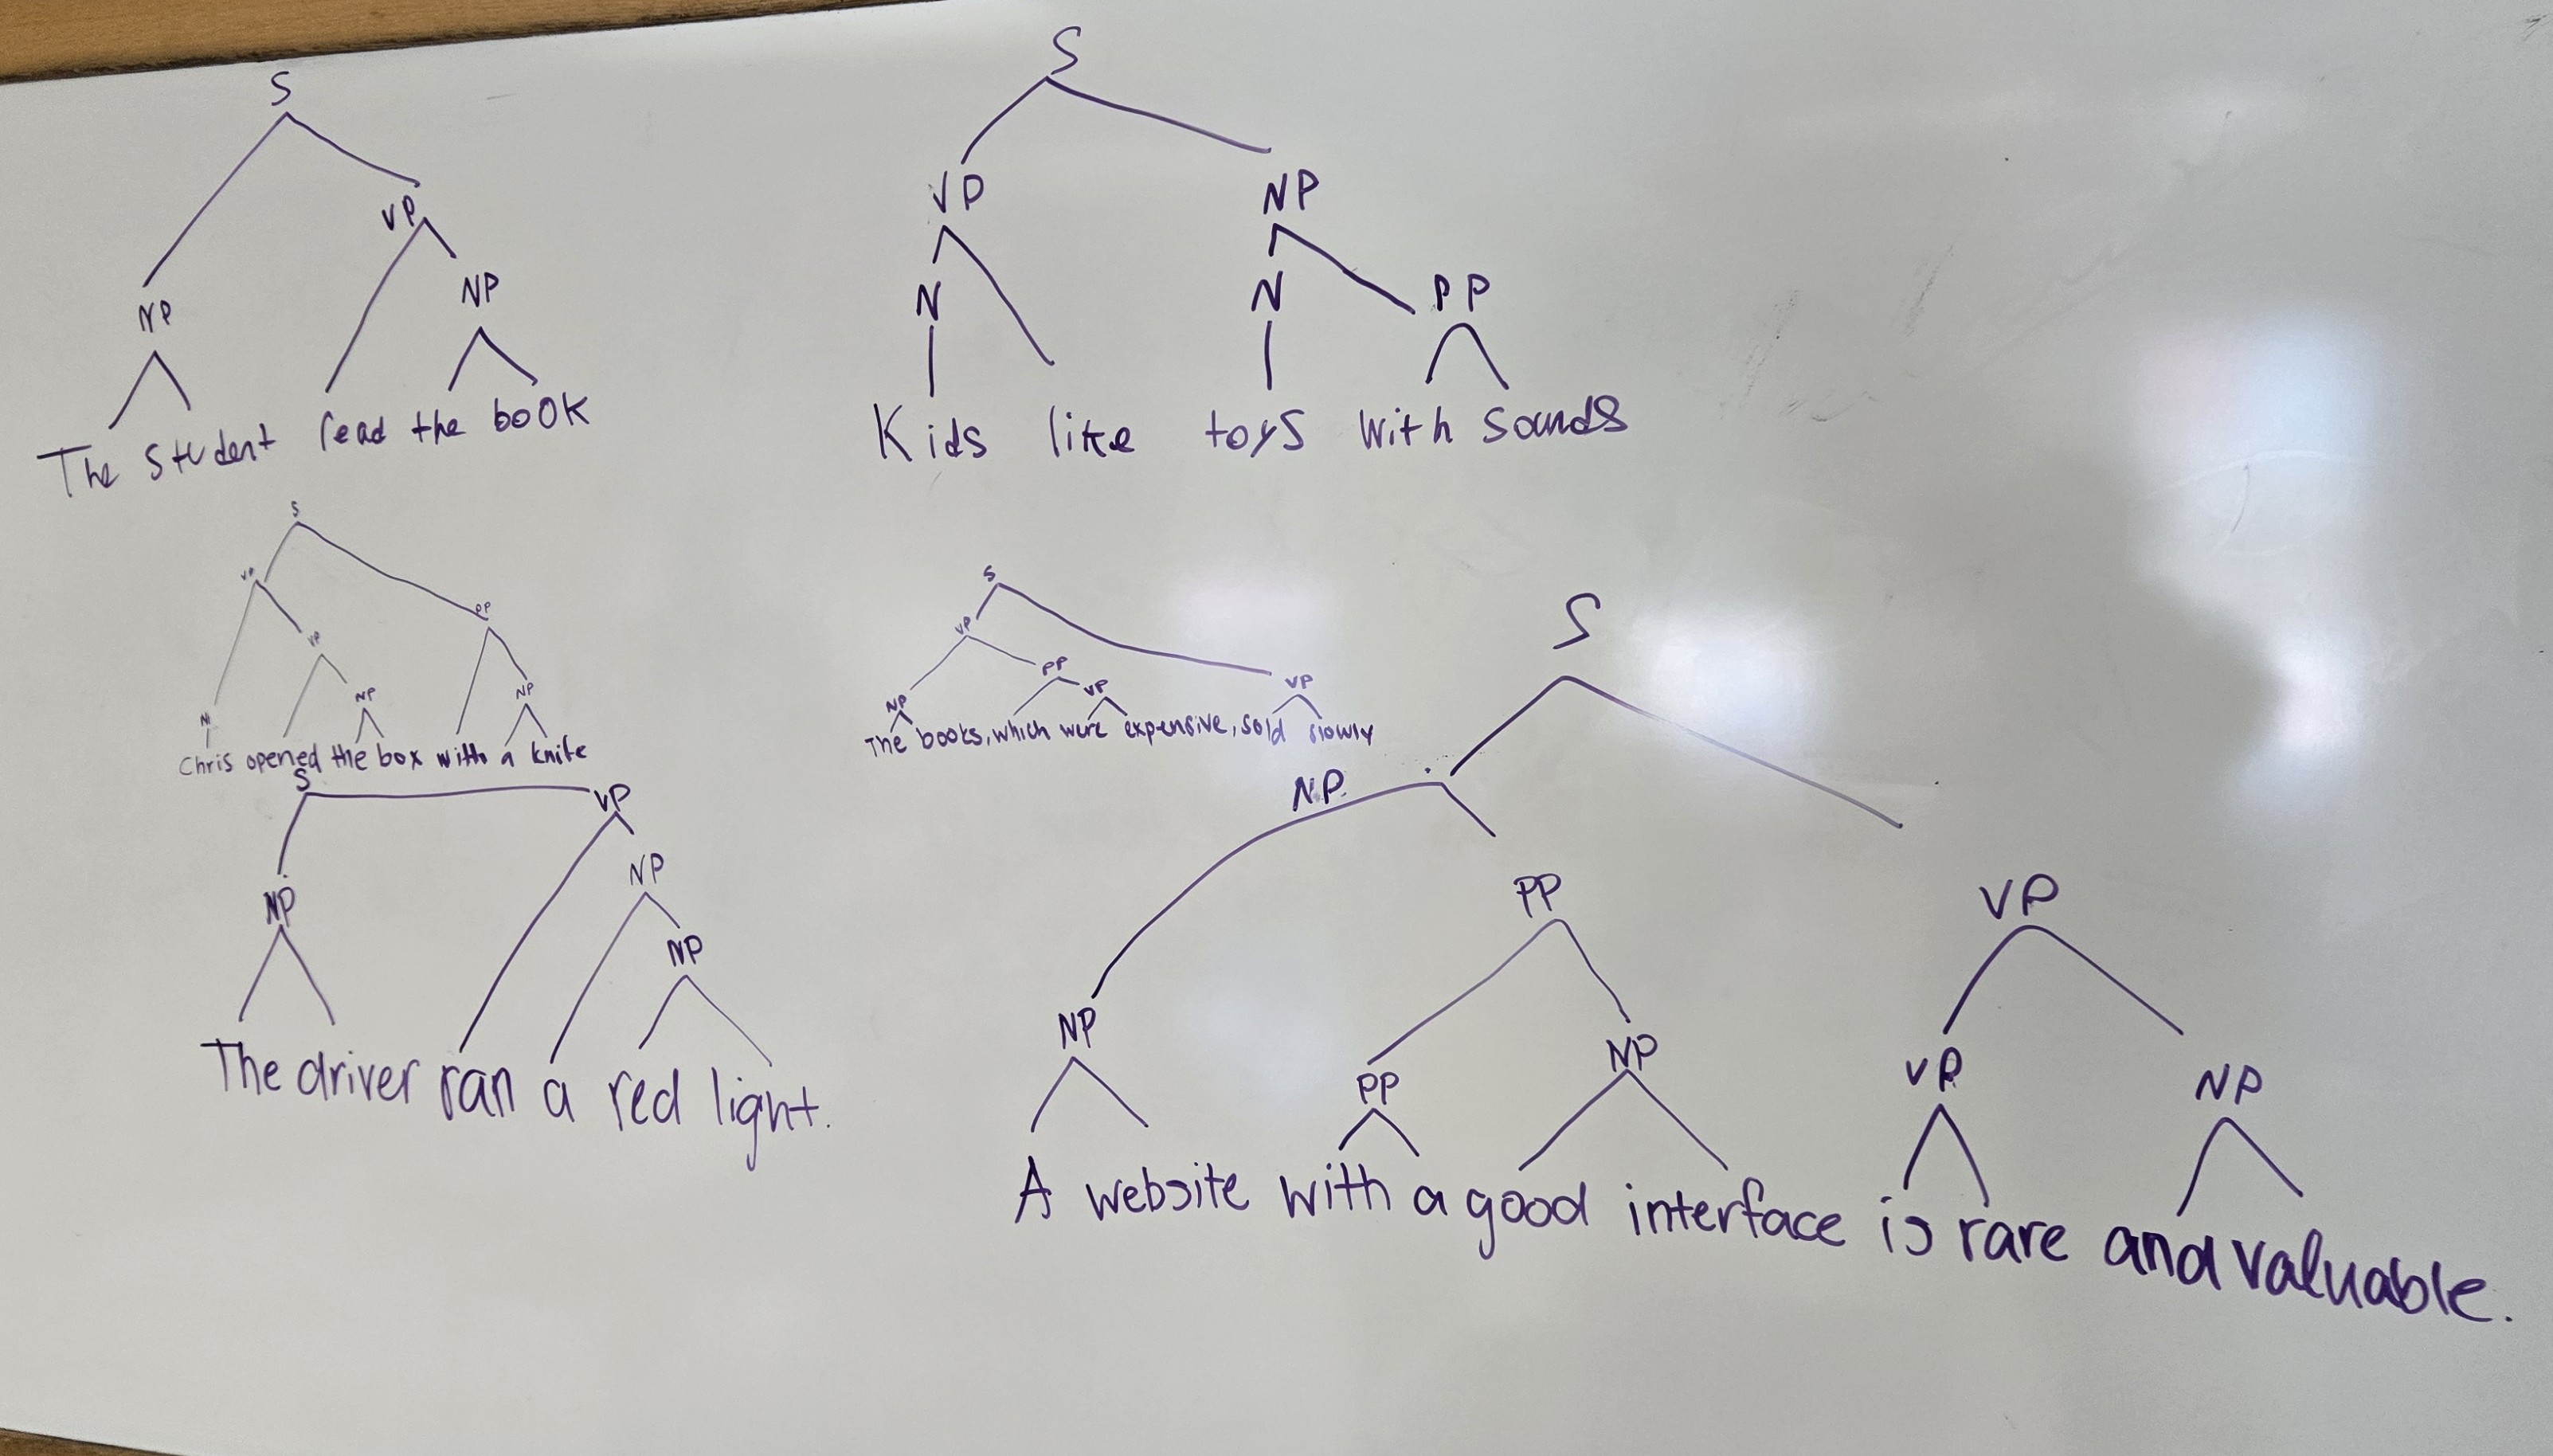 S
VP
NP
NP
The student read the book
S
VP
NP
N
N
PP
Kids like toys with sounds
S
VP
PP
VP
NP
NP
N
Chris opened the box with a knife
S
VP
PP
VP
VP
NP
The books, which were expensive, sold slowly
S
VP
NP
NP
NP
The driver ran a red light.
S
NP
PP
VP
NP
PP
NP
VP
NP
A website with a good interface is rare and valuable.